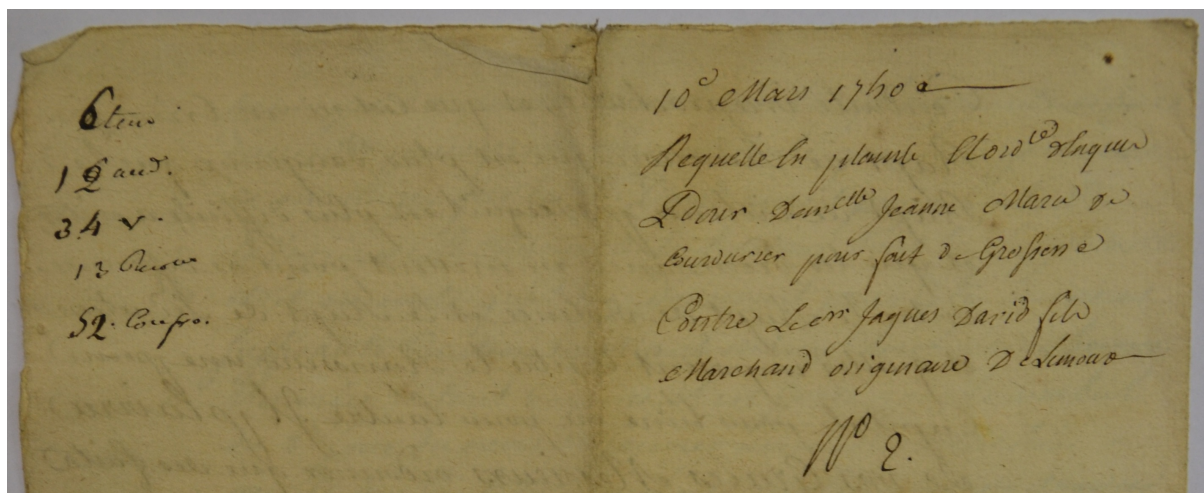 6 tem.
12 aud.
34 v.
13 Recou
52. Confro.
10e Mars 1740
Requette En plainte Et ord.ce d'Enquis
Pour Demelle Jeanne Marie de
Couvurier pour fait de Grossesse
Contre Le Sr Jaques David fils
Marchand originaire De Limoux
No 2.